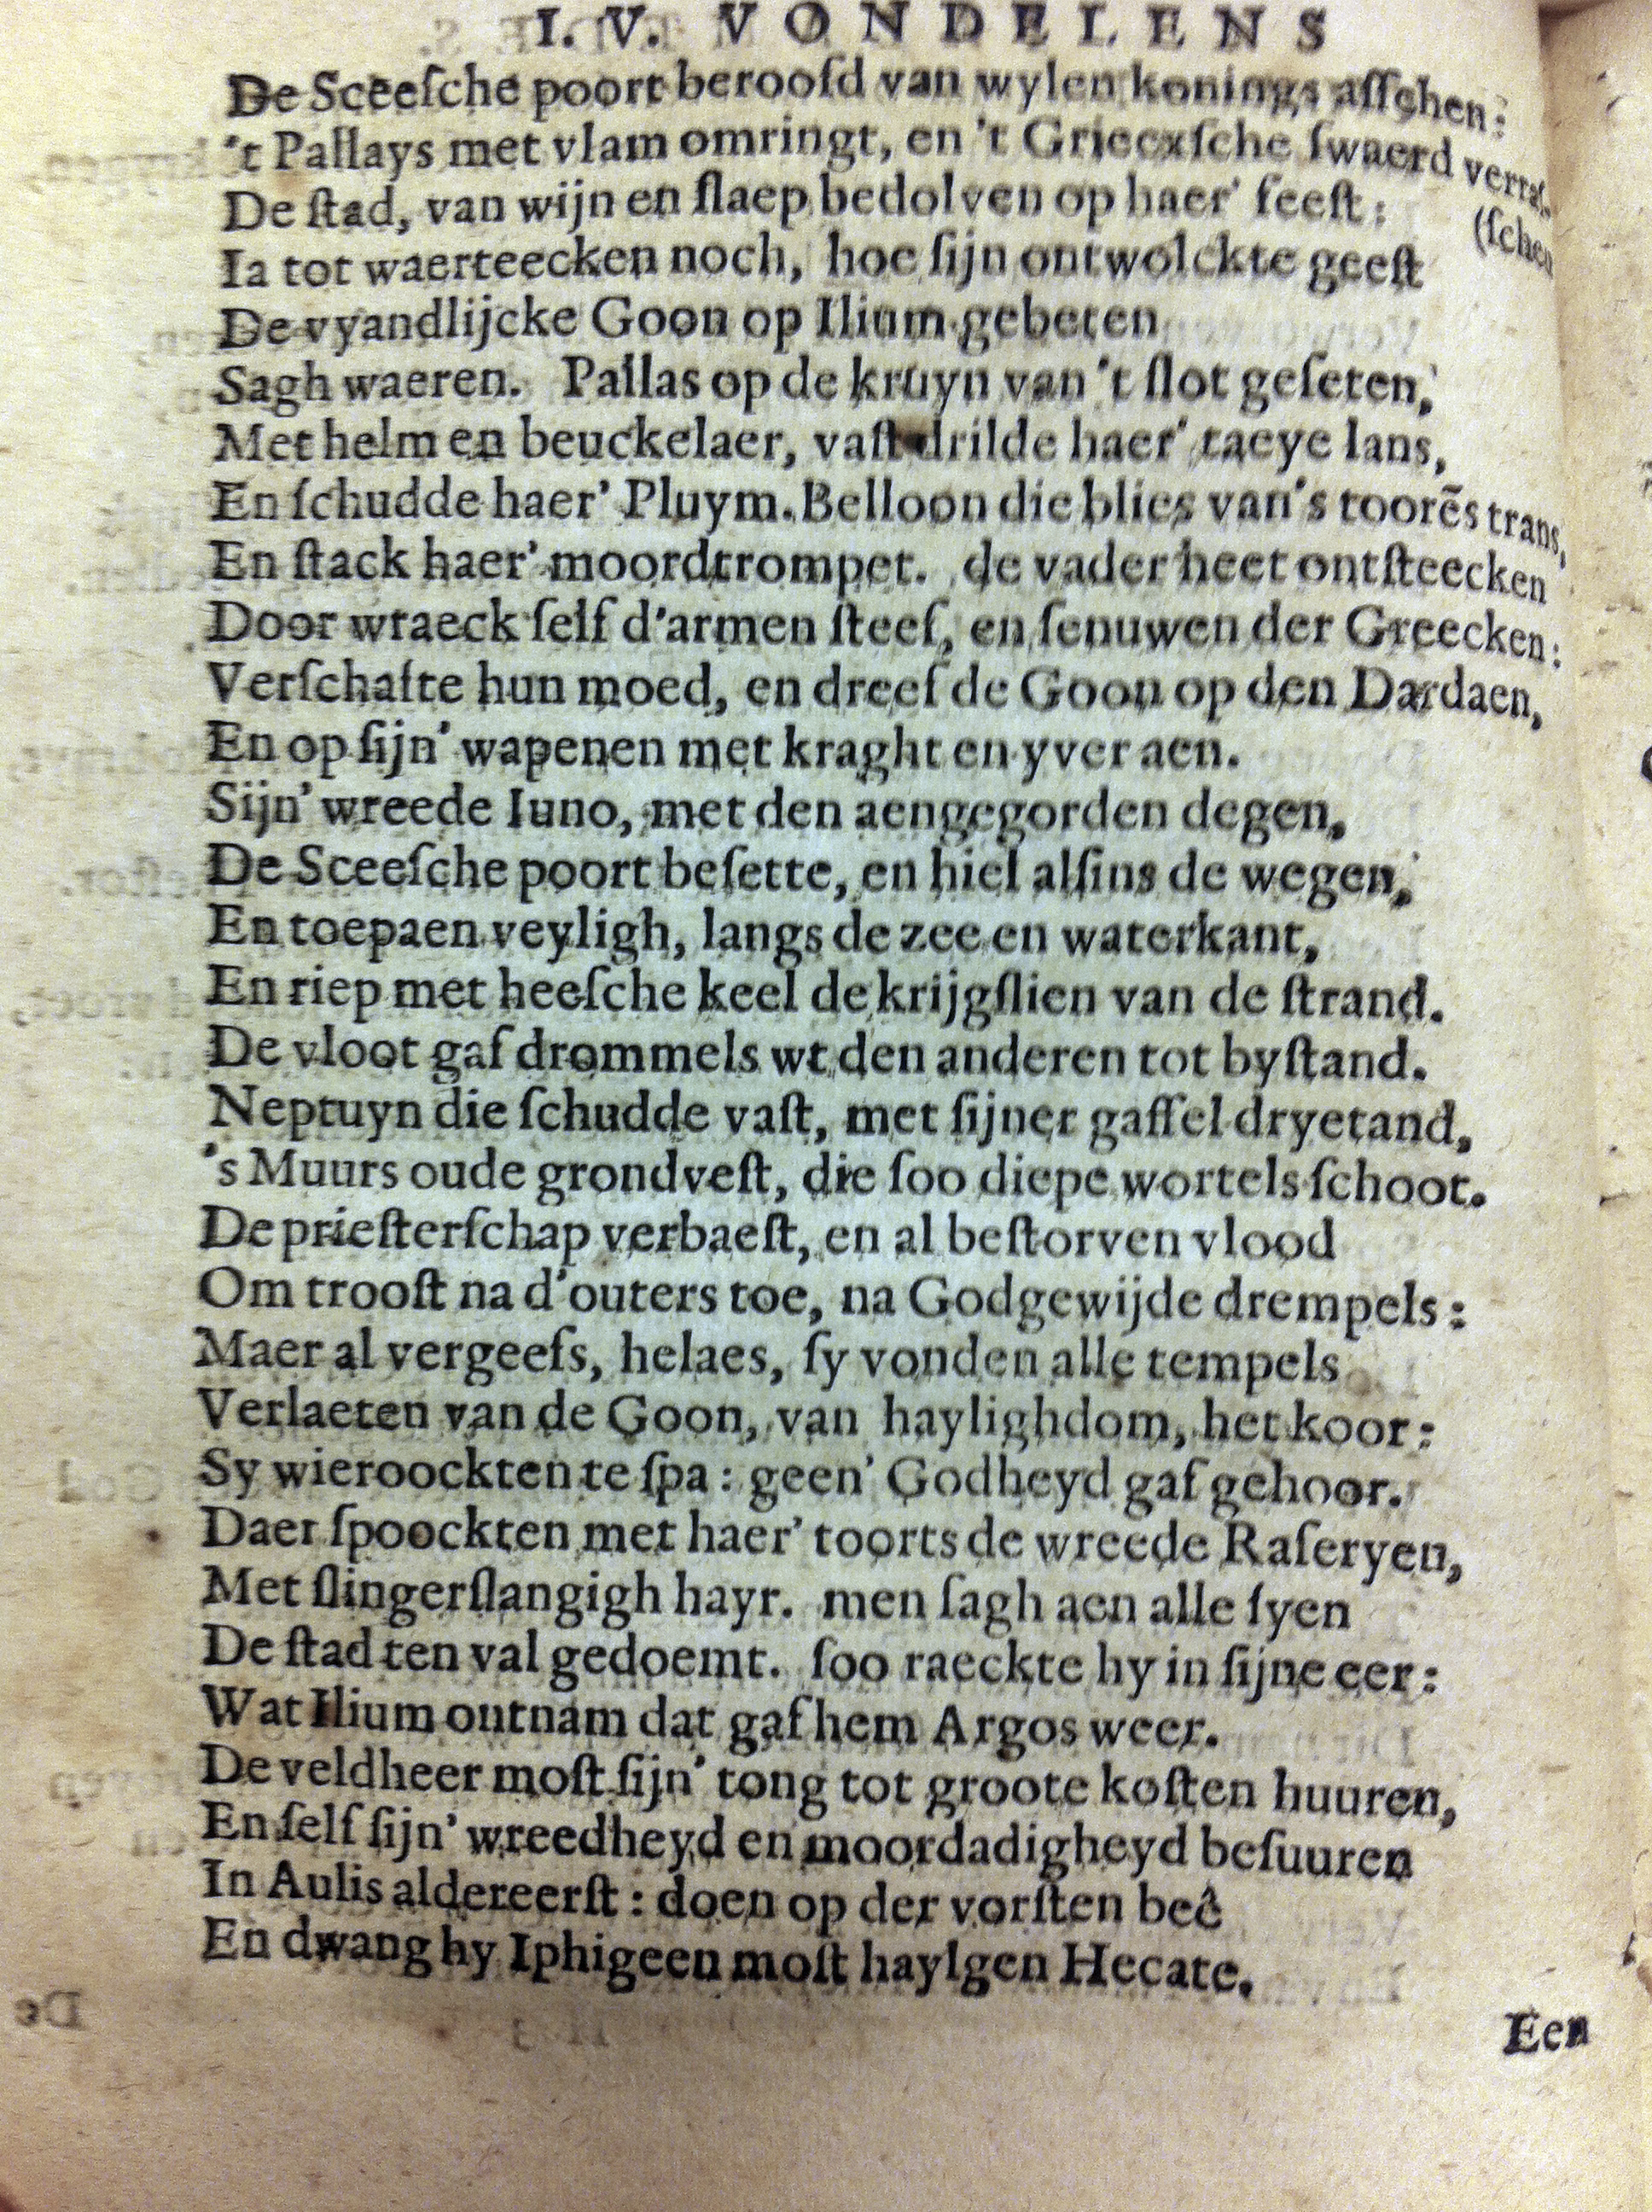 I. V. VONDELENS
De Sceeſche poort beroofd van wylen konings aſſchen:
't Pallays met vlam omringt, en 't Griecxſche ſwaerd verraſ-
De ſtad, van wijn en ſlaep bedolven op haer' feeſt: (ſchen
Ia tot waerteecken noch, hoe ſijn ontwolckte geeſt
De vyandlijcke Goon op Ilium gebeten
Sagh waeren. Pallas op de kruyn van 't ſlot geſeten,
Met helm en beuckelaer, vaſt drilde haer' taeye lans,
En ſchudde haer' Pluym. Belloon die blies van's toorēs trans,
En ſtack haer' moordtrompet. de vader heet ontſteecken
Door wraeck ſelf d'armen ſteef, en ſenuwen der Greecken:
Verſchafte hun moed, en dreef de Goon op den Dardaen,
En op ſijn' wapenen met kraght en yver aen.
Sijn' wreede Iuno, met den aengegorden degen,
De Sceeſche poort beſette, en hiel alſins de wegen,
En toepaen veyligh, langs de zee en waterkant,
En riep met heeſche keel de krijgſlien van de ſtrand.
De vloot gaf drommels wt den anderen tot byſtand.
Neptuyn die ſchudde vaſt, met ſijner gaffel dryetand,
's Muurs oude grondveſt, die ſoo diepe wortels ſchoot.
De prieſterſchap verbaeſt, en al beſtorven vlood
Om trooſt na d'outers toe, na Godgewijde drempels:
Maer al vergeefs, helaes, ſy vonden alle tempels
Verlaeten van de Goon, van haylighdom, het koor:
Sy wieroockten te ſpa: geen' Godheyd gaf gehoor.
Daer ſpoockten met haer' toorts de wreede Raſeryen,
Met ſlingerſlangigh hayr. men ſagh aen alle ſyen
De ſtad ten val gedoemt. ſoo raeckte hy in ſijne eer:
Wat Ilium ontnam dat gaf hem Argos weer.
De veldheer moſt ſijn' tong tot groote koſten huuren,
En ſelf ſijn' wreedheyd en moordadigheyd beſuuren
In Aulis aldereerſt: doen op der vorſten beê
En dwang hy Iphigeen moſt haylgen Hecate.
Een